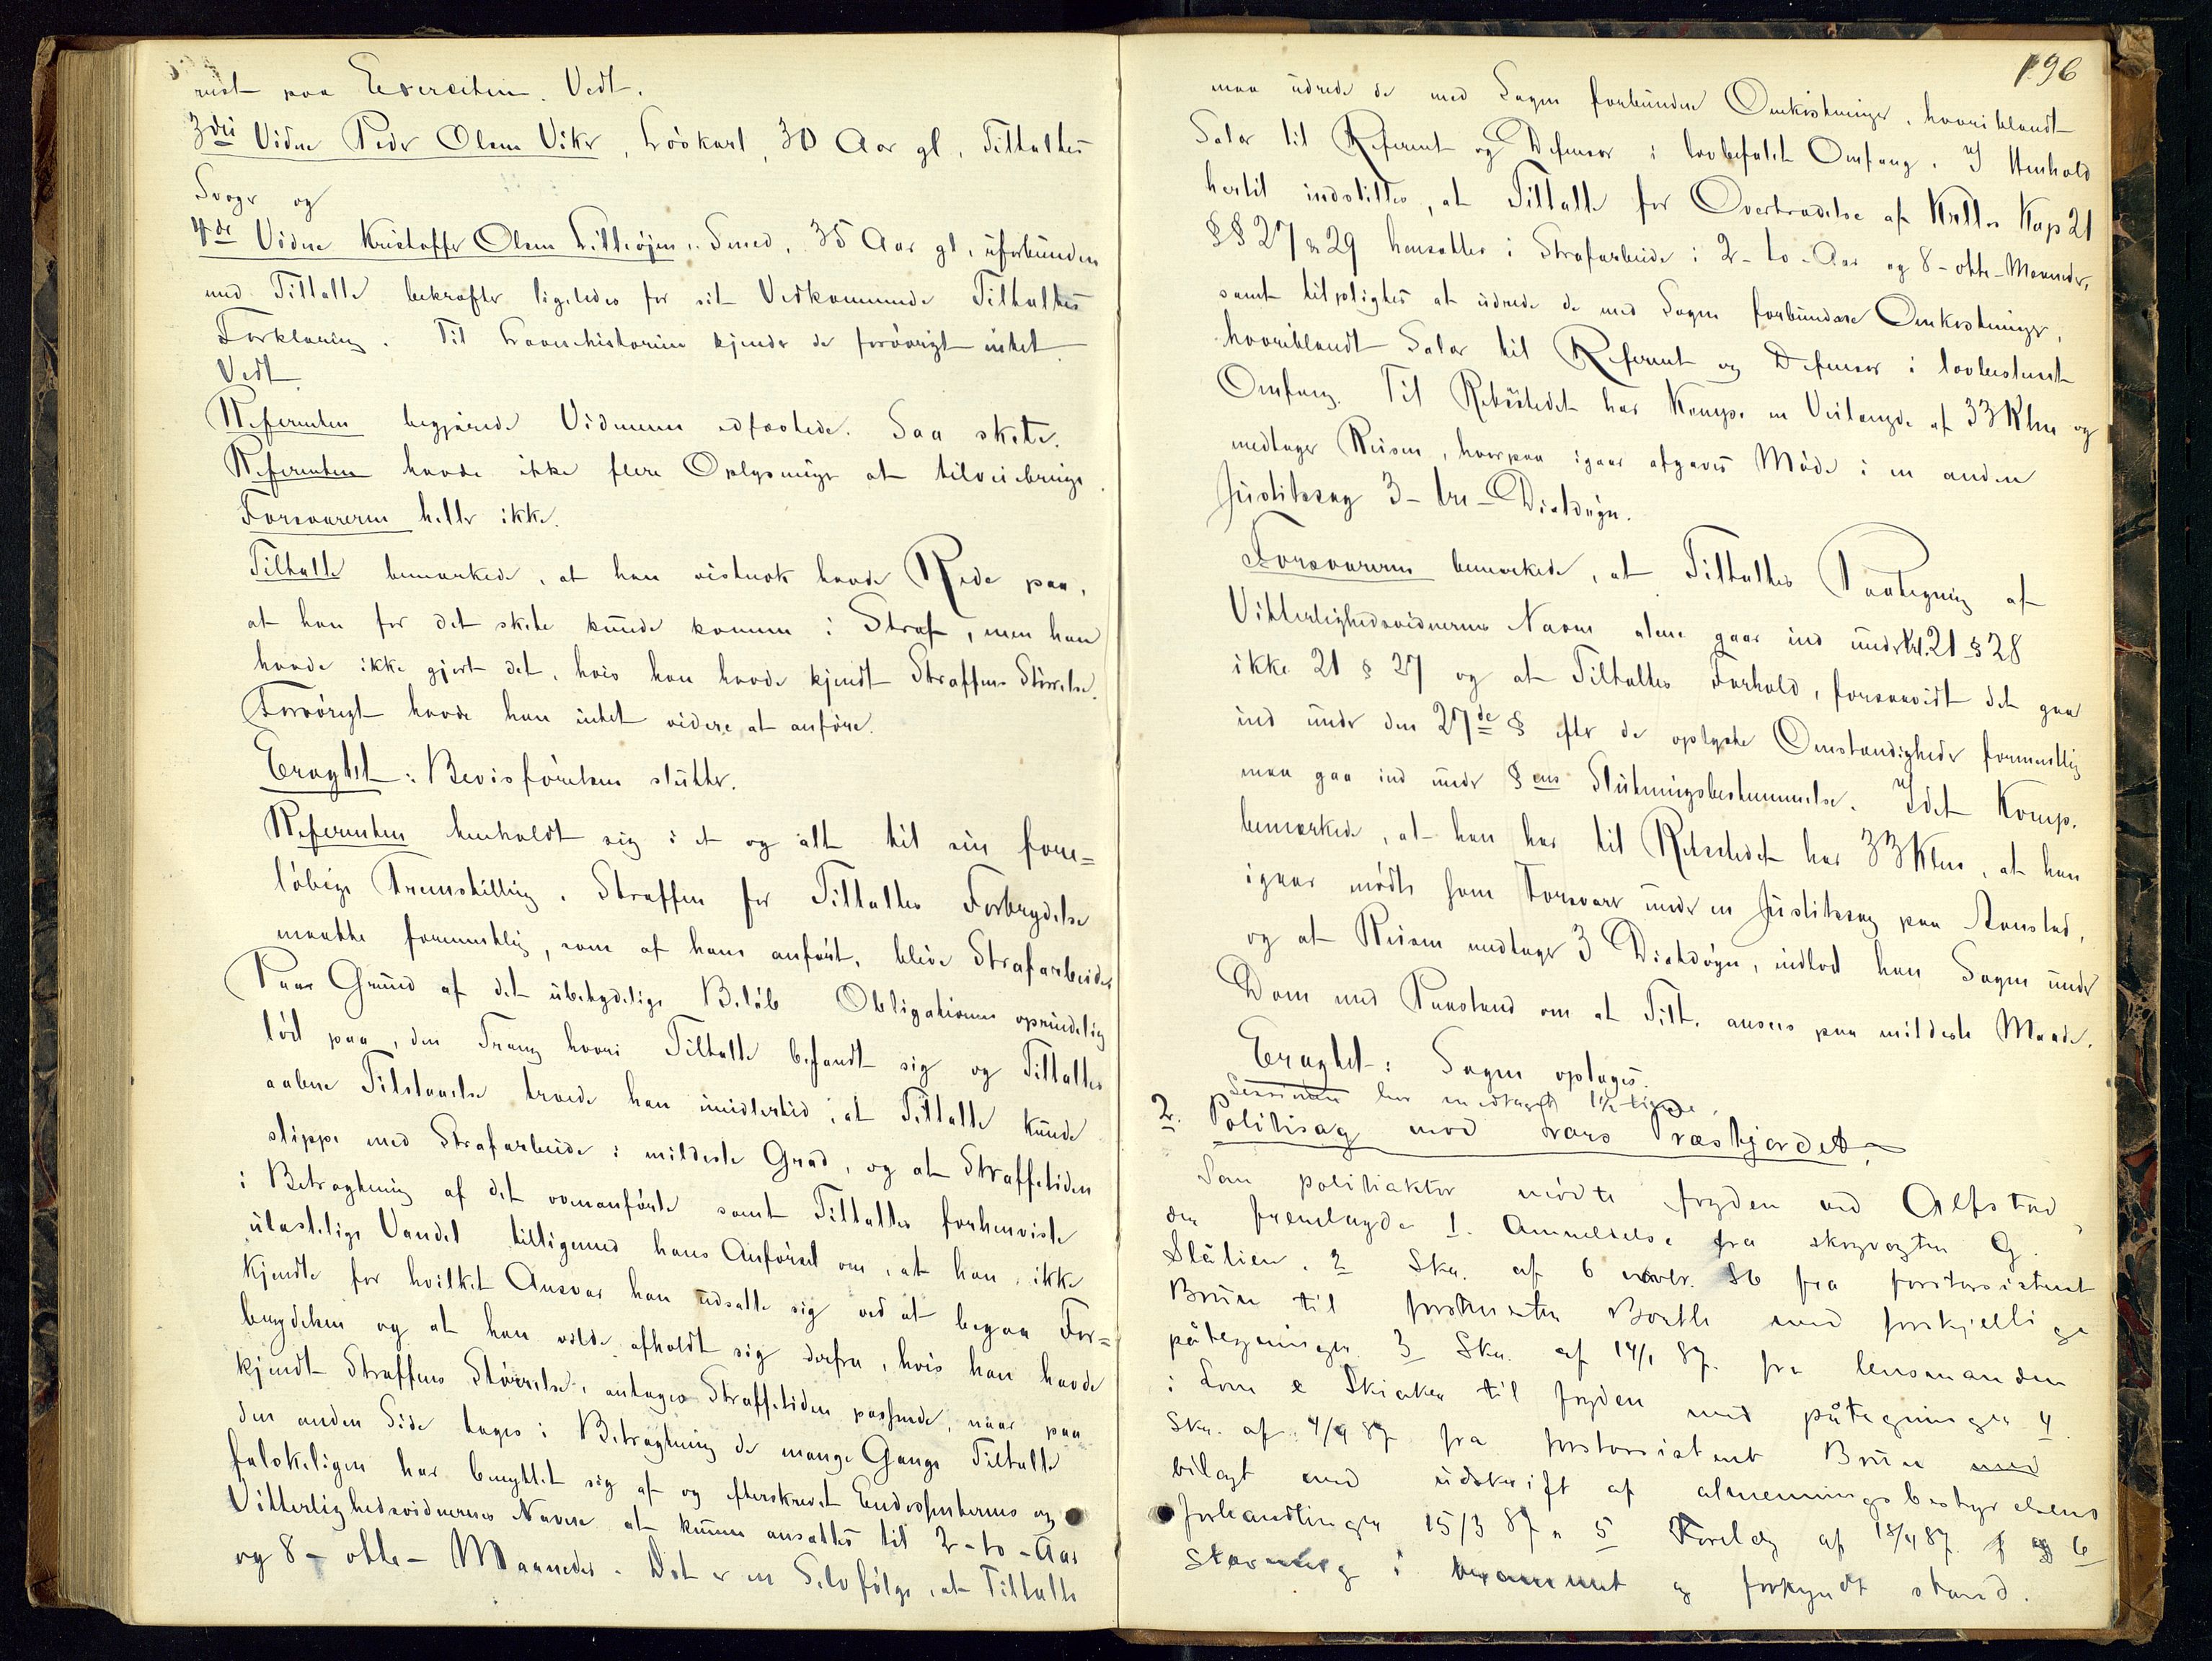 rest paa Exercitien. Vedt.
3die Vidne Peder Olsen Viker, Löskarl, 30 Aar gl, Tiltaltes
Svoger og
4de Vidne Kristoffer Olsen Lilleöjen, Smed, 35 Aar gl, uforbunden
med Tiltalte bekræfter ligeledes for sit Vedkommende Tiltaltes
Forklaring. Til Laanehistorien kjender de forövrigt intet.
Vedt.
Referenten begjærede Vidnerne edfæstede. Saa skete.
Referenten havde ikke flere Oplysninger at tilveiebringe.
Forsvareren heller ikke.
Tiltalte bemærkede, at han vistnok havde Rede paa,
at han for det skete kunde komme i Straf, men han
havde ikke gjort det, hvis han havde kjendt Straffens Störrelse.
Forövrigt havde han intet videre at anföre.
Eragtet: Bevisförelsen slutter.
Referenten henholdt sig i et og alt til sin fore=
löbige Fremstilling. Straffen for Tiltaltes Forbrydelse
maatte formentlig, som af ham anfört, blive Strafarbeide.
Paa Grund af det ubetydelige Belöb Obligationen oprindelig
löd paa, den Trang hvori Tiltalte befandt sig og Tiltaltes
aabne Tilstaaelse troede han imidlertid, at Tiltalte kunde
slippe med Strafarbeide i mildeste Grad, og at Straffetiden
i Betragtning af det ovenanförte samt Tiltaltes forhenværende
ulastelige Vandel tilligemed hans Anförsel om, at han ikke
kjendte for hvilket Ansvar han udsatte sig ved at begaa For=
brydelsen og at han vilde afholdt sig derfra, hvis han havde
kjendt Straffens Störrelse, antages Straffetiden passende, naar paa
den anden Side tages i Betragtning de mange Gange Tiltalte
falskeligen har benyttet sig af og efterskrevet Endossenternes og
Vitterlighedsvidnernes Navne at kunne ansættes til 2 - to - Aar
og 8 - otte - Maaneder. Det er en Selvfölge, at Tiltalte
196
maa udrede de med Sagen forbundne Omkostninger, hvoriblandt
Salær til Referent og Defensor i lovbefalet Omfang. I Henhold
hertil indstilles, at Tiltalte for Overtrædelse af Krltes Kap 21
§§ 27 & 29 hensættes i Strafarbeide i 2 - to - Aar og 8 - otte - Maaneder,
samt tilpligtes at udrede de med Sagen forbundne Omkostninger,
hvoriblandt Salær til Referent og Defensor i lovbestemt
Omfang. Til Retsstedet har Komp. en Veilængde af 33 Klm og
medtager Reisen, hvorpaa igaar afgaves Möde i en anden
Justitssag 3 - tre - Diætdögn.
Forsvareren bemærkede, at Tiltaltes Paategning af
Vitterlighedsvidnernes Navne alene gaar ind under Krl. 21 § 28
ikke 21 § 27 og at Tiltaltes Forhold, forsaavidt det gaar
ind under den 27de § efter de oplyste Omstændigheder formentlig
maa gaa ind under § ens Slutningsbestemmelse. Idet Komp.
bemærkede, at han har til Retsstedet her 33 Klm, at han
igaar mødte som Forsvarer under en Justitssag paa Aanstad,
og at Reisen medtager 3 Diætdögn, indlod han Sagen under
Dom med Paastand om at Tilt. ansees paa mildeste Maade.
Eragtet: Sagen optages.
Sessionen har medtaget 1½ time.
2. Politisag mod Lars Præstkjerdet
Som politiaktor mödte fogden ved Alfstad,
der fremlagde 1. Anmeldelse fra skogvogter G.
Slålien. 2 Skr. af 6 novbr. 86 fra forstassistent
Bruu til forstmester Borthe med forskjellige
påtegninger. 3 Skr. af 14/1 87. fra lensmanden
i Lom & Skiaker til fogden med påtegninger 4.
Skr. af 4/4 87 fra forstassistent Bruu med
bilagt med udskrift af almenningsbestyrelsens
forhandlinger 15/3 87. 5 Forelæg af 18/4 87. og 6
Stævning i beramment og forkyndt stand.